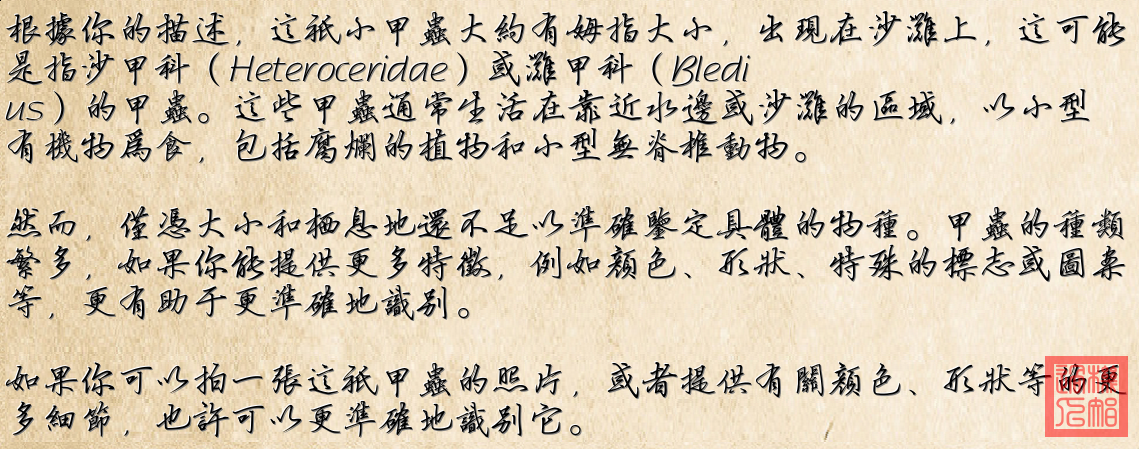 根據你的描述，這祇小甲蟲大約有姆指大小，出現在沙灘上，這可能
是指沙甲科（Heteroceridae）或灘甲科（Bledi
us）的甲蟲。這些甲蟲通常生活在靠近水邊或沙灘的區域，以小型
有機物爲食，包括腐爛的植物和小型無脊椎動物。
然而，僅憑大小和栖息地還不足以準確鑒定具體的物種。甲蟲的種類
繁多，如果你能提供更多特徵，例如顏色、形狀、特殊的標志或圖案
等，更有助于更準確地識别。
如果你可以拍一張這祇甲蟲的照片，或者提供有關顏色、形狀等的更
多細節，也許可以更準確地識别它。